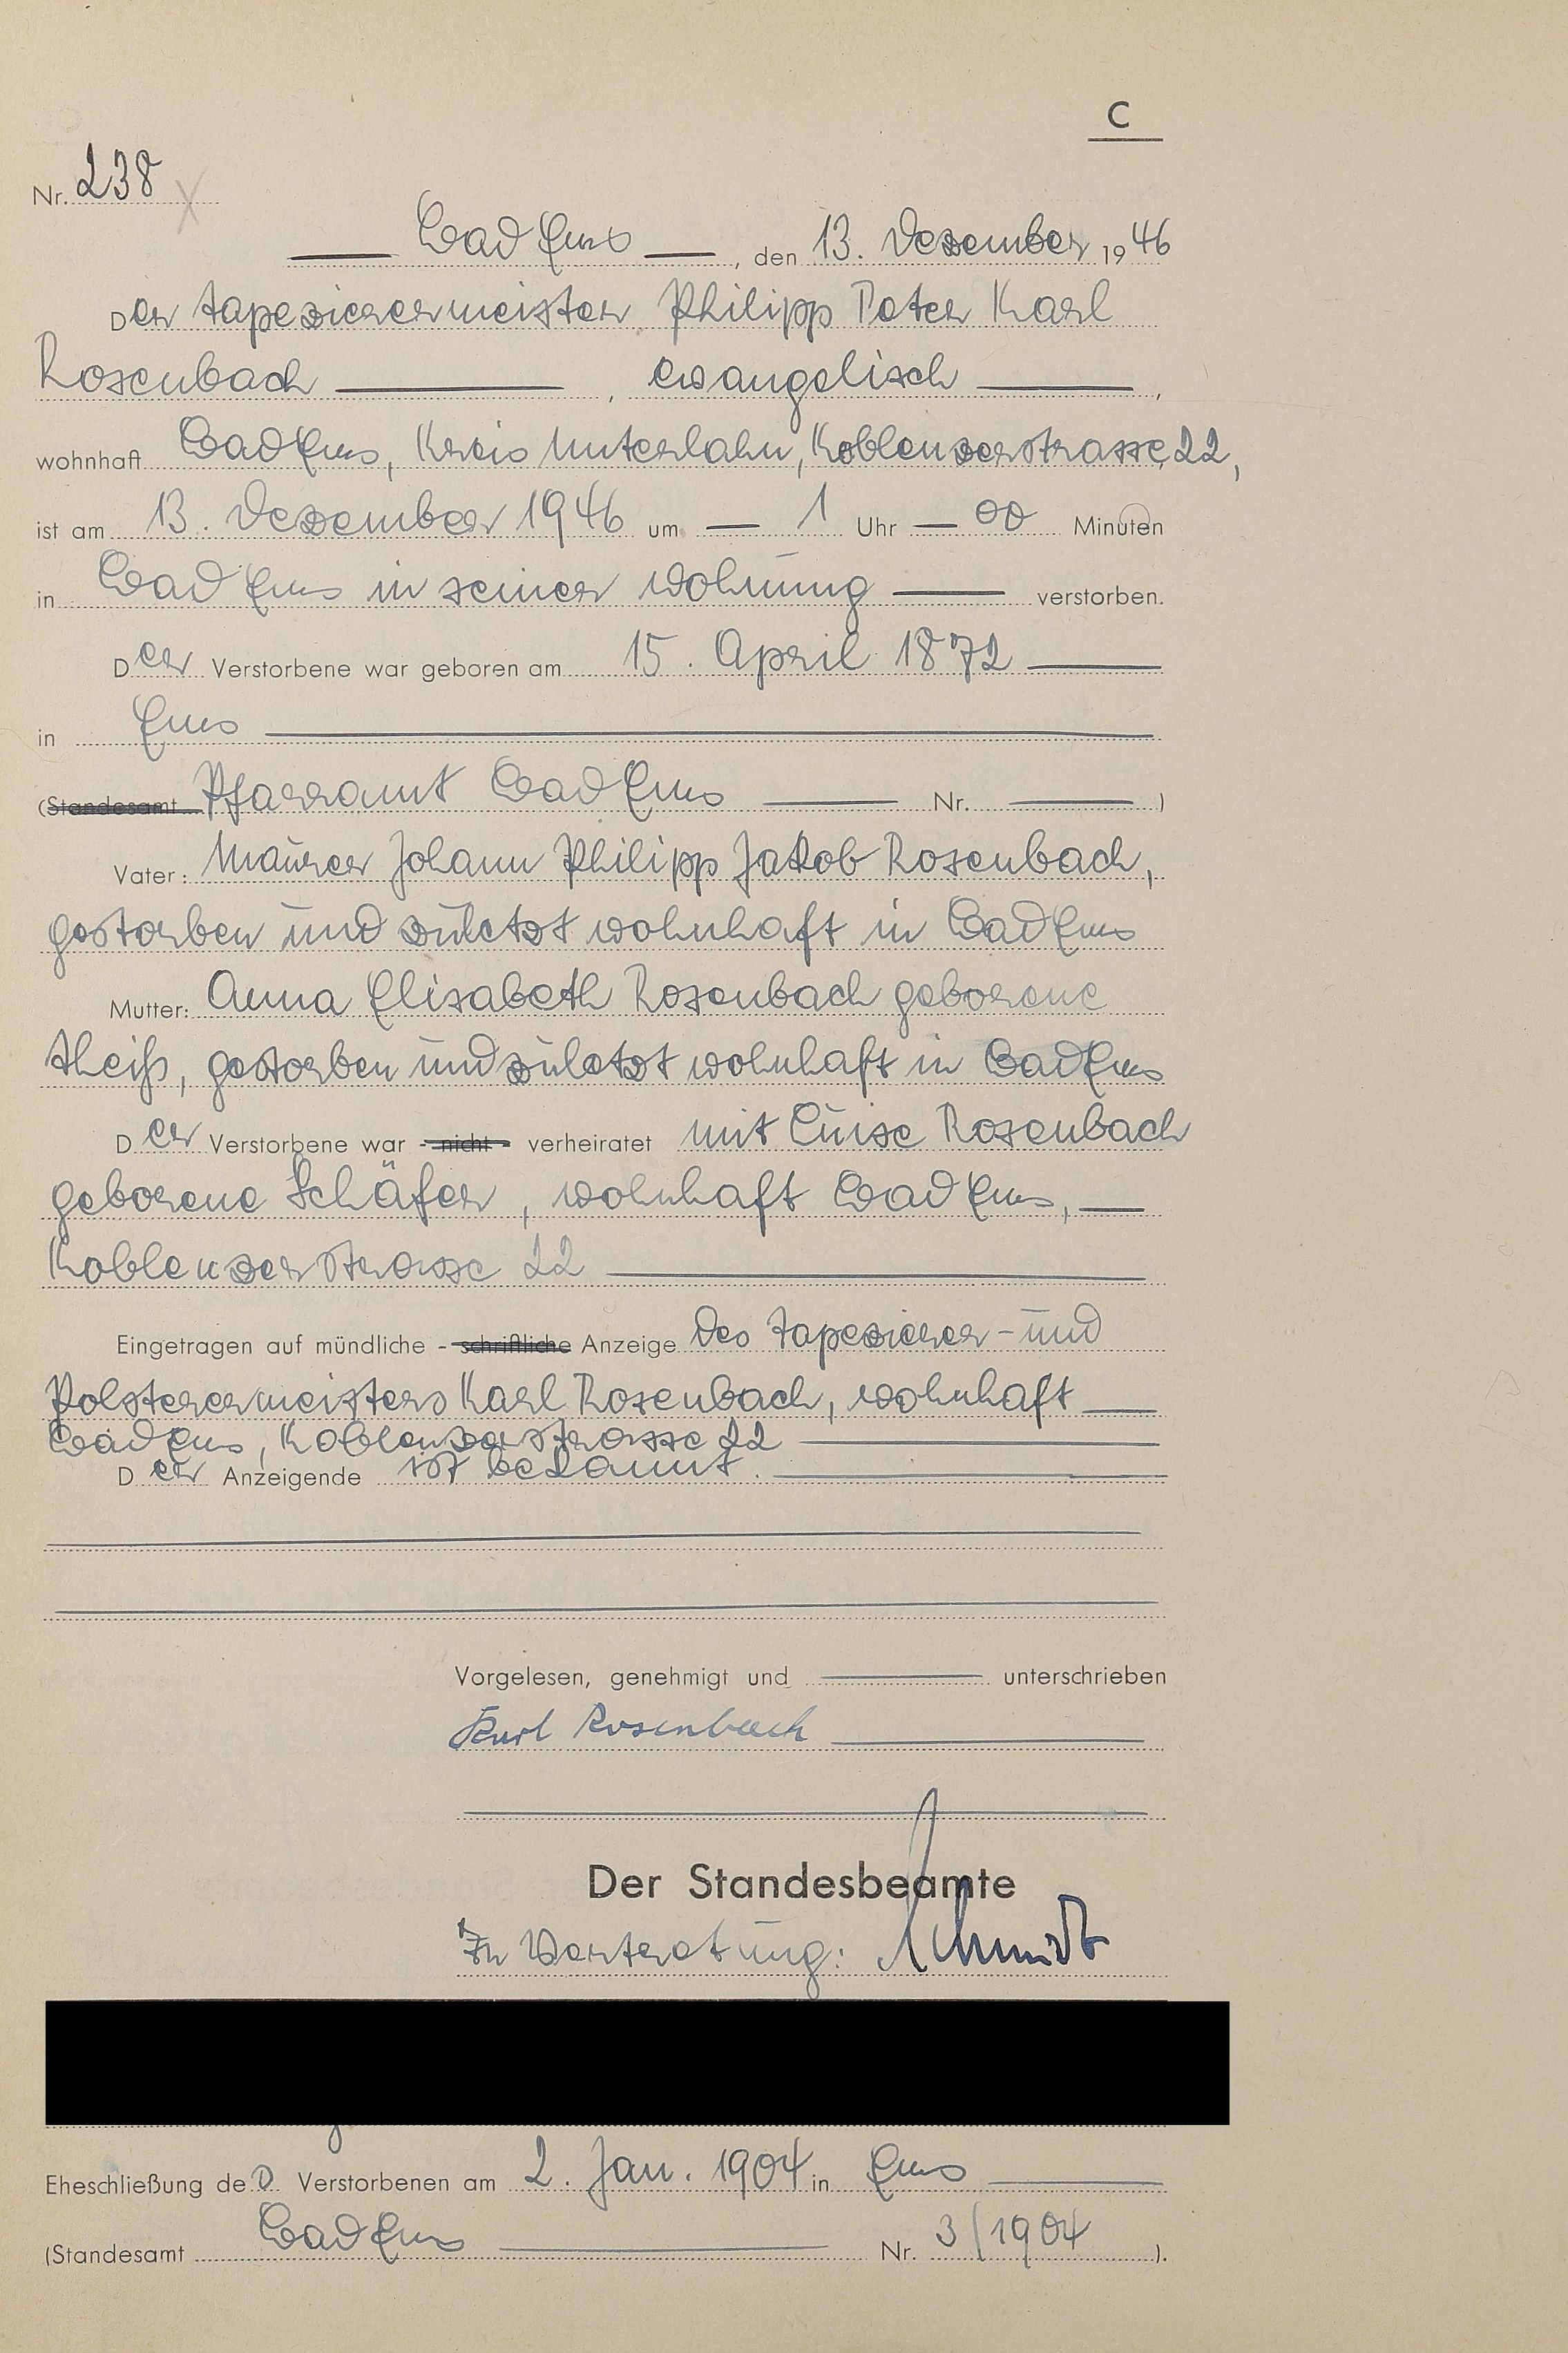 C
Nr. 238
Bad Ems, den 13. Dezember 1946
Der Tapezierermeister Philipp Peter Karl
Rosenbach, evangelisch,
wohnhaft Bad Ems, Kreis Unterlahn, Koblenzerstrasse 22,
ist am 13. Dezember 1946 um 1 Uhr 00 Minuten
in Bad Ems in seiner Wohnung verstorben.
Der Verstorbene war geboren am 15. April 1872
in Ems
(Standesamt Pfarramt Bad Ems Nr. )
Vater: Maurer Johann Philipp Jakob Rosenbach,
gestorben und zuletzt wohnhaft in Bad Ems
Mutter: Anna Elisabeth Rosenbach geborene
Theiß, gestorben und zuletzt wohnhaft in Bad Ems
Der Verstorbene war - nicht - verheiratet mit Luise Rosenbach
geborene Schäfer, wohnhaft Bad Ems,
Koblenzerstrasse 22
Eingetragen auf mündliche - schriftliche Anzeige des Tapezierer- und
Polsterermeisters Karl Rosenbach, wohnhaft
Bad Ems, Koblenzerstrasse 22
Der Anzeigende ist bekannt.
Vorgelesen, genehmigt und unterschrieben
Karl Rosenbach
Der Standesbeamte
In Vertretung: Schmidt
Eheschließung des Verstorbenen am 2. Jan. 1904 in Ems
(Standesamt Bad Ems Nr. 3/1904 ).